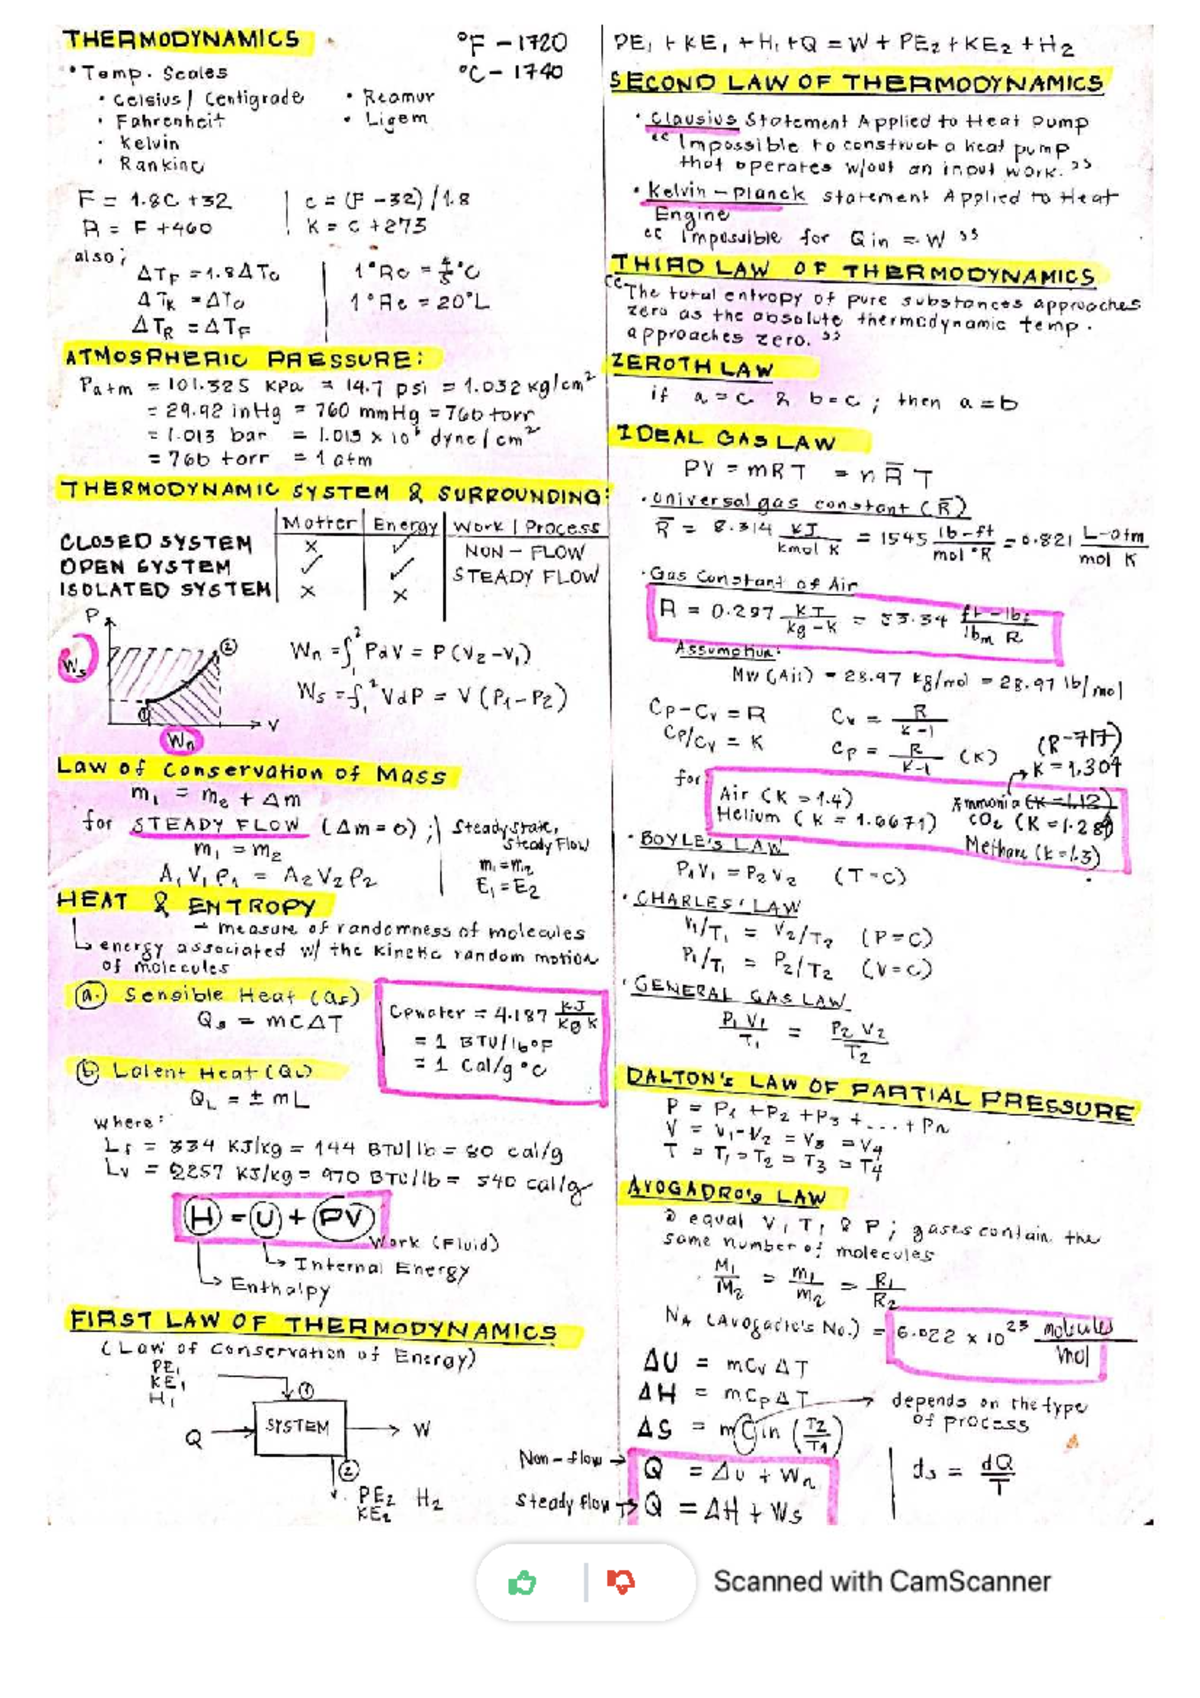 THERMODYNAMICS
°F - 1720
°C - 1740
• Temp. Scales
• Celsius / Centigrade
• Reamur
• Fahrenheit
• Ligem
• Kelvin
• Rankine
F = 1.8C + 32
C = (F - 32) / 1.8
R = F + 460
K = C + 273
also;
ΔTF = 1.8ΔTC
1°Re = 4/5 °C
ΔTK = ΔTC
1°Re = 20°L
ΔTR = ΔTF
ATMOSPHERIC PRESSURE:
Patm = 101.325 KPa = 14.7 psi = 1.032 kg/cm²
= 29.92 inHg = 760 mmHg = 760 torr
= 1.013 bar = 1.013 x 10⁶ dyne/cm²
= 760 torr = 1 atm
THERMODYNAMIC SYSTEM & SURROUNDING:
Matter | Energy | Work | Process
CLOSED SYSTEM x ✓ NON - FLOW
OPEN SYSTEM ✓ ✓ STEADY FLOW
ISOLATED SYSTEM x x
P
Ws
②
①
V
Wn
Wn = ∫₁² PdV = P(V2 - V1)
Ws = ∫₁² VdP = V(P1 - P2)
Law of Conservation of Mass
m1 = m2 + Δm
for STEADY FLOW (Δm = 0);
Steady state, Steady Flow
m1 = m2
m1 = m2
A1 V1 ρ1 = A2 V2 ρ2
E1 = E2
HEAT & ENTROPY
→ measure of randomness of molecules
↳ energy associated w/ the kinetic random motion
of molecules
a. Sensible Heat (Qs)
Qs = mCΔT
Cpwater = 4.187 KJ/Kg K
= 1 BTU/lb°F
= 1 Cal/g°C
b Latent Heat (QL)
QL = ± mL
where:
Lf = 334 KJ/kg = 144 BTU/lb = 80 cal/g
Lv = 2257 KJ/kg = 970 BTU/lb = 540 cal/g
H = U + PV
Work (Fluid)
↳ Internal Energy
↳ Enthalpy
FIRST LAW OF THERMODYNAMICS
(Law of Conservation of Energy)
PE1
KE1
H1
①
Q → SYSTEM → W
②
PE2 H2
KE2
PE1 + KE1 + H1 + Q = W + PE2 + KE2 + H2
SECOND LAW OF THERMODYNAMICS
• Clausius Statement Applied to Heat Pump
" Impossible to construct a heat pump
that operates w/out an input work. "
• Kelvin - Planck statement Applied to Heat
Engine
" Impossible for Qin = W "
THIRD LAW OF THERMODYNAMICS
" The total entropy of pure substances approaches
zero as the absolute thermodynamic temp.
approaches zero. "
ZEROTH LAW
if a = c & b = c ; then a = b
IDEAL GAS LAW
PV = mRT = nR̄T
• Universal gas constant (R̄)
R̄ = 8.314 KJ/Kmol K = 1545 lb-ft/mol °R = 0.821 L-atm/mol K
• Gas Constant of Air
R = 0.287 KJ/kg-K = 53.34 ft-lbf/lbm R
Assumption:
MW (Air) = 28.97 kg/mol = 28.97 lb/mol
Cp - Cv = R
Cv = R/K-1
Cp/Cv = K
Cp = R/K-1 (K)
(R-717)
K = 1.304
for
Air (K = 1.4)
Ammonia (K = 1.12)
Helium (K = 1.6671)
CO2 (K = 1.28)
Methane (K = 1.3)
• BOYLE'S LAW
P1V1 = P2V2 (T = C)
• CHARLES' LAW
V1/T1 = V2/T2 (P = C)
P1/T1 = P2/T2 (V = C)
• GENERAL GAS LAW
P1 V1/T1 = P2 V2/T2
DALTON'S LAW OF PARTIAL PRESSURE
P = P1 + P2 + P3 + .... + Pn
V = V1 = V2 = V3 = V4
T = T1 = T2 = T3 = T4
AVOGADRO'S LAW
@ equal V, T, & P ; gases contain the
same number of molecules
M1/M2 = m1/m2 = R1/R2
NA (Avogadro's No.) = 6.022 x 10²³ molecules/mol
ΔU = mCv ΔT
ΔH = mCp ΔT
ΔS = mC ln (T2/T1)
→ depends on the type
of process
Non - flow → Q = ΔU + Wn
ds = dQ/T
Steady flow → Q = ΔH + Ws
Scanned with CamScanner